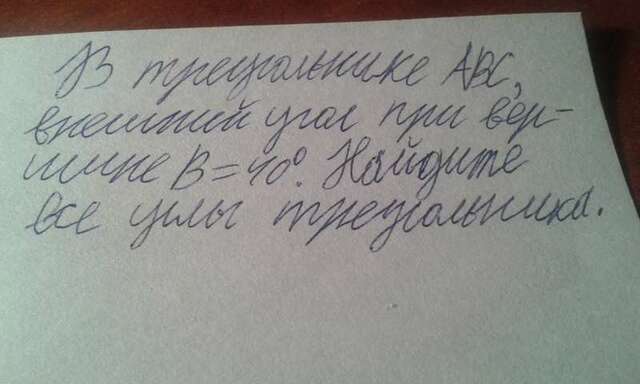 В треугольнике ABC,
внешний угол при вер-
шине B = 40°. Найдите
все углы треугольника.